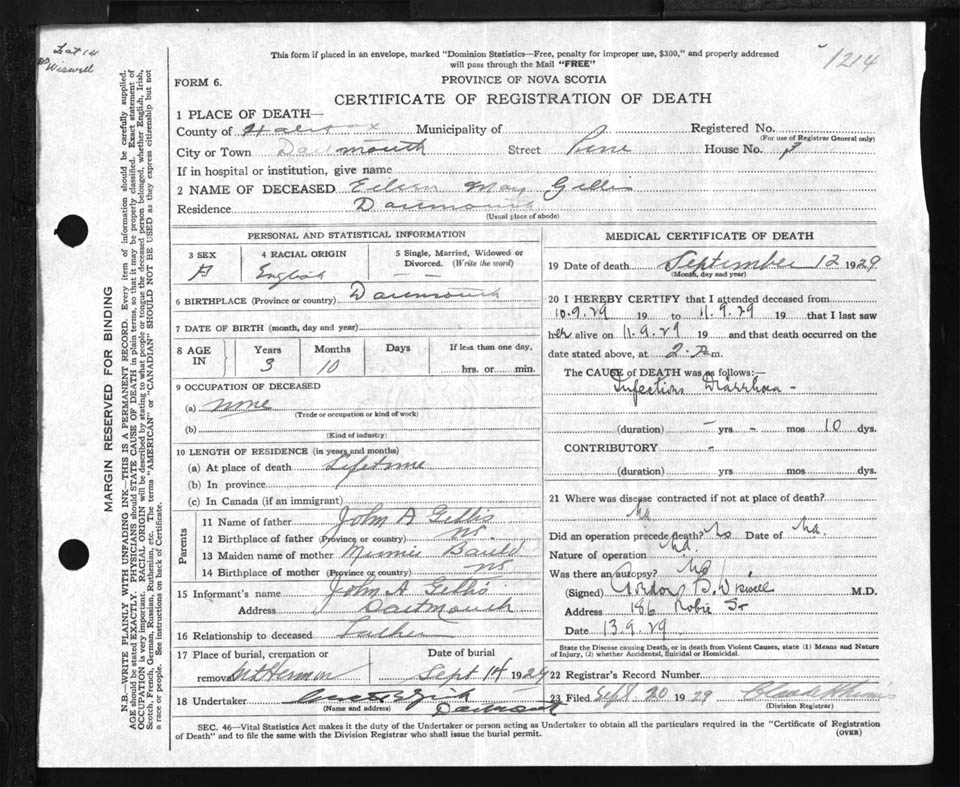 Wiswell
1214
This form if placed in an envelope, marked "Dominion Statistics—Free, penalty for improper use, $300," and properly addressed
will pass through the Mail "FREE"
FORM 6.
PROVINCE OF NOVA SCOTIA
CERTIFICATE OF REGISTRATION OF DEATH
1 PLACE OF DEATH—
County of Halifax Municipality of Registered No.
(For use of Registrar General only)
City or Town Dartmouth Street Pine House No.
If in hospital or institution, give name
2 NAME OF DECEASED Eileen May Gillis
Residence Dartmouth
(Usual place of abode)
MARGIN RESERVED FOR BINDING
N.B.—WRITE PLAINLY WITH UNFADING INK—THIS IS A PERMANENT RECORD. Every item of information should be carefully supplied.
AGE should be stated EXACTLY. PHYSICIANS should STATE CAUSE OF DEATH in plain terms, so that it may be properly classified. Exact statement of
OCCUPATION is very important. RACIAL ORIGIN will be described by stating to what people or tongue the deceased person belonged, whether English, Irish,
Scotch, French, German, Russian, Ruthenian, etc. The terms "AMERICAN" or "CANADIAN" SHOULD NOT BE USED as they express citizenship but not
a race or people. See instructions on back of Certificate.
PERSONAL AND STATISTICAL INFORMATION
3 SEX 4 RACIAL ORIGIN 5 Single, Married, Widowed or
Divorced. (Write the word)
English — —
6 BIRTHPLACE (Province or country) Dartmouth
7 DATE OF BIRTH (month, day and year)
8 AGE IN Years Months Days If less than one day,
3 10 hrs. or min.
9 OCCUPATION OF DECEASED
(a) none
(Trade or occupation or kind of work)
(b)
(Kind of industry)
10 LENGTH OF RESIDENCE (in years and months)
(a) At place of death Lifetime
(b) In province
(c) In Canada (if an immigrant)
Parents
11 Name of father John A Gillis
12 Birthplace of father (Province or country) NS
13 Maiden name of mother Minnie Bauld
14 Birthplace of mother (Province or country) NS
15 Informant's name John A Gillis
Address Dartmouth
16 Relationship to deceased Father
17 Place of burial, cremation or Date of burial
removal Mt Hermon Sept 14 1929
18 Undertaker
(Name and address) Dartmouth
MEDICAL CERTIFICATE OF DEATH
19 Date of death September 12 1929
(Month, day and year)
20 I HEREBY CERTIFY that I attended deceased from
10.9.29 19 to 11.9.29 19 that I last saw
her alive on 11.9.29 19 and that death occurred on the
date stated above, at 2 m.
The CAUSE of DEATH was as follows:—
Infectious Diarrhoea —
(duration) — yrs — mos 10 dys.
CONTRIBUTORY -
(duration) yrs mos dys.
21 Where was disease contracted if not at place of death?
Did an operation precede death? No Date of
Nature of operation
Was there an autopsy? No
(Signed) Gordon B. Wiswell M.D.
Address 186 Robie St
Date 13.9.29
State the Disease causing Death, or in death from Violent Causes, state (1) Means and Nature
of Injury, (2) whether Accidental, Suicidal or Homicidal.
22 Registrar's Record Number
23 Filed Sept 20 1929
(Division Registrar)
SEC. 46—Vital Statistics Act makes it the duty of the Undertaker or person acting as Undertaker to obtain all the particulars required in the "Certificate of Registration
of Death" and to file the same with the Division Registrar who shall issue the burial permit.
(OVER)